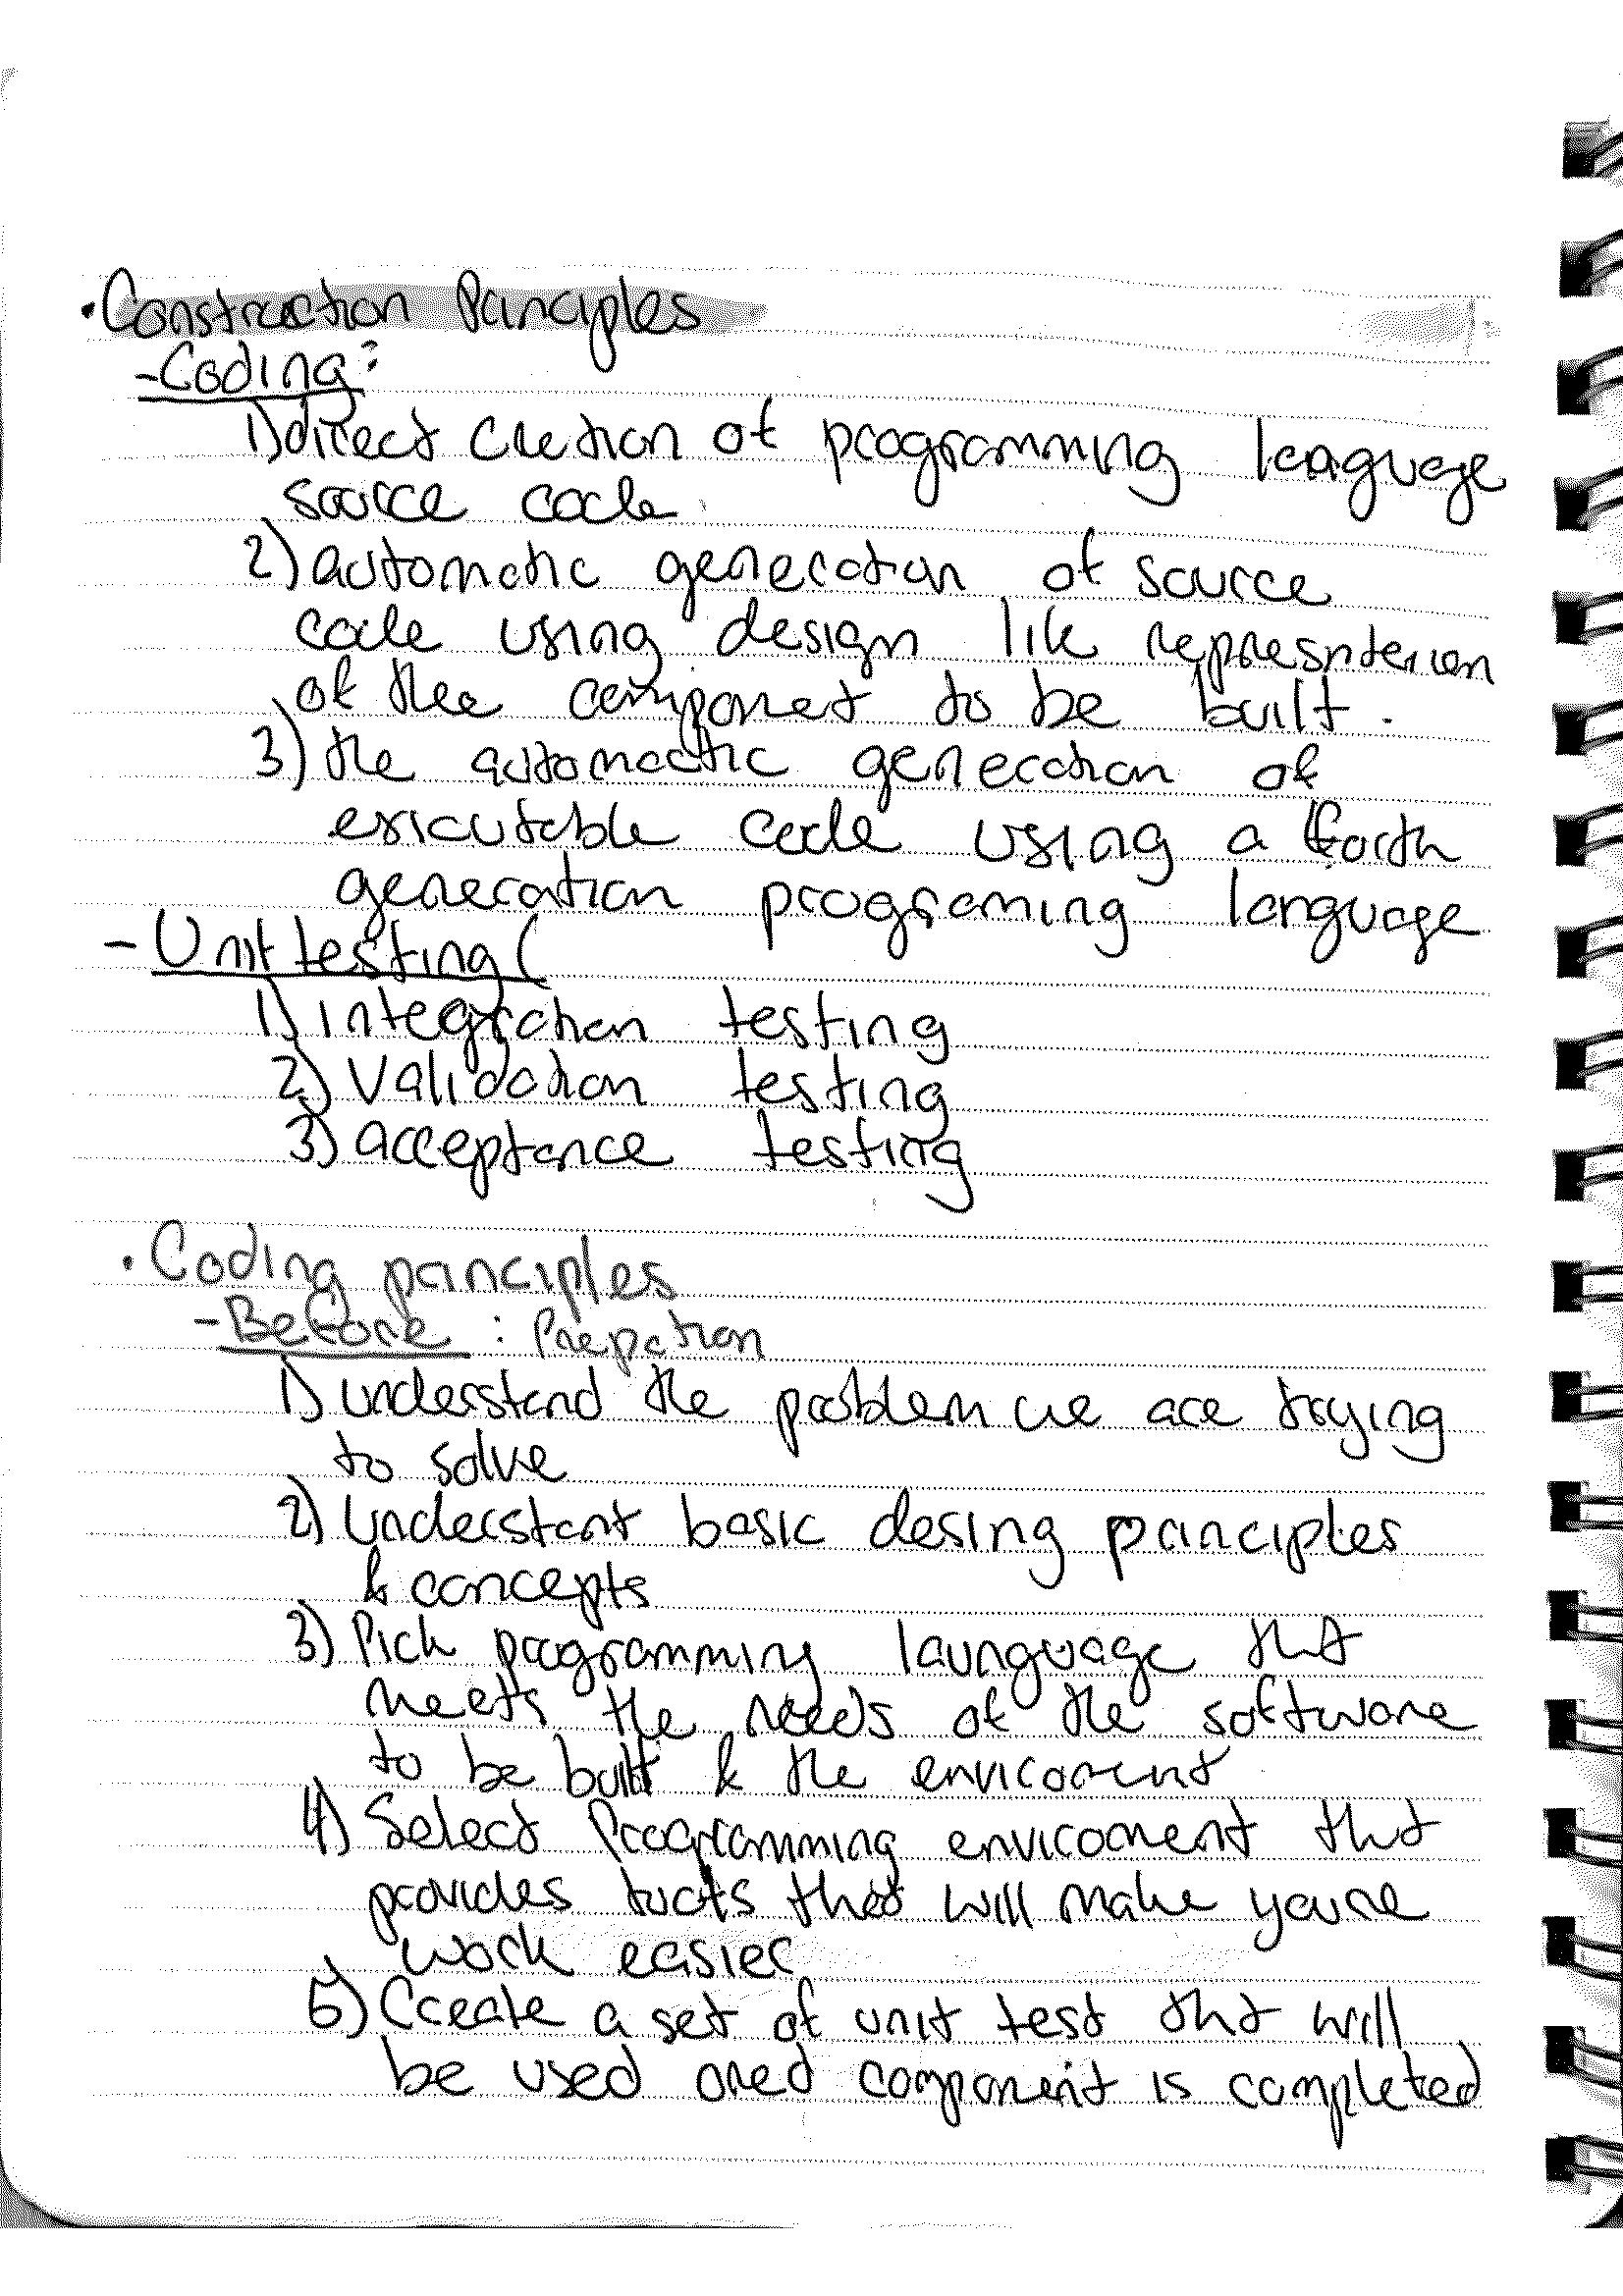 • Construction Principles
- Coding:
1) direct cretion of programming leaguage
source code
2) automatic generation of source
code using design like represnterion
of the componet to be built.
3) the automactic generation of
exicutable code using a forth
generation programing language
- Unit testing (
1) integration testing
2) validation testing
3) acceptance testing
• Coding principles
- Before : Prepation
1) understand the problem we are trying
to solve
2) Understant basic desing principles
& concepts
3) Pick programming launguage tht
meets the needs of the software
to be built & the enviroment
4) Select Programming enviroment tht
provides that will make youre
work easier
5) Create a set of unit test tht will
be used component is completed